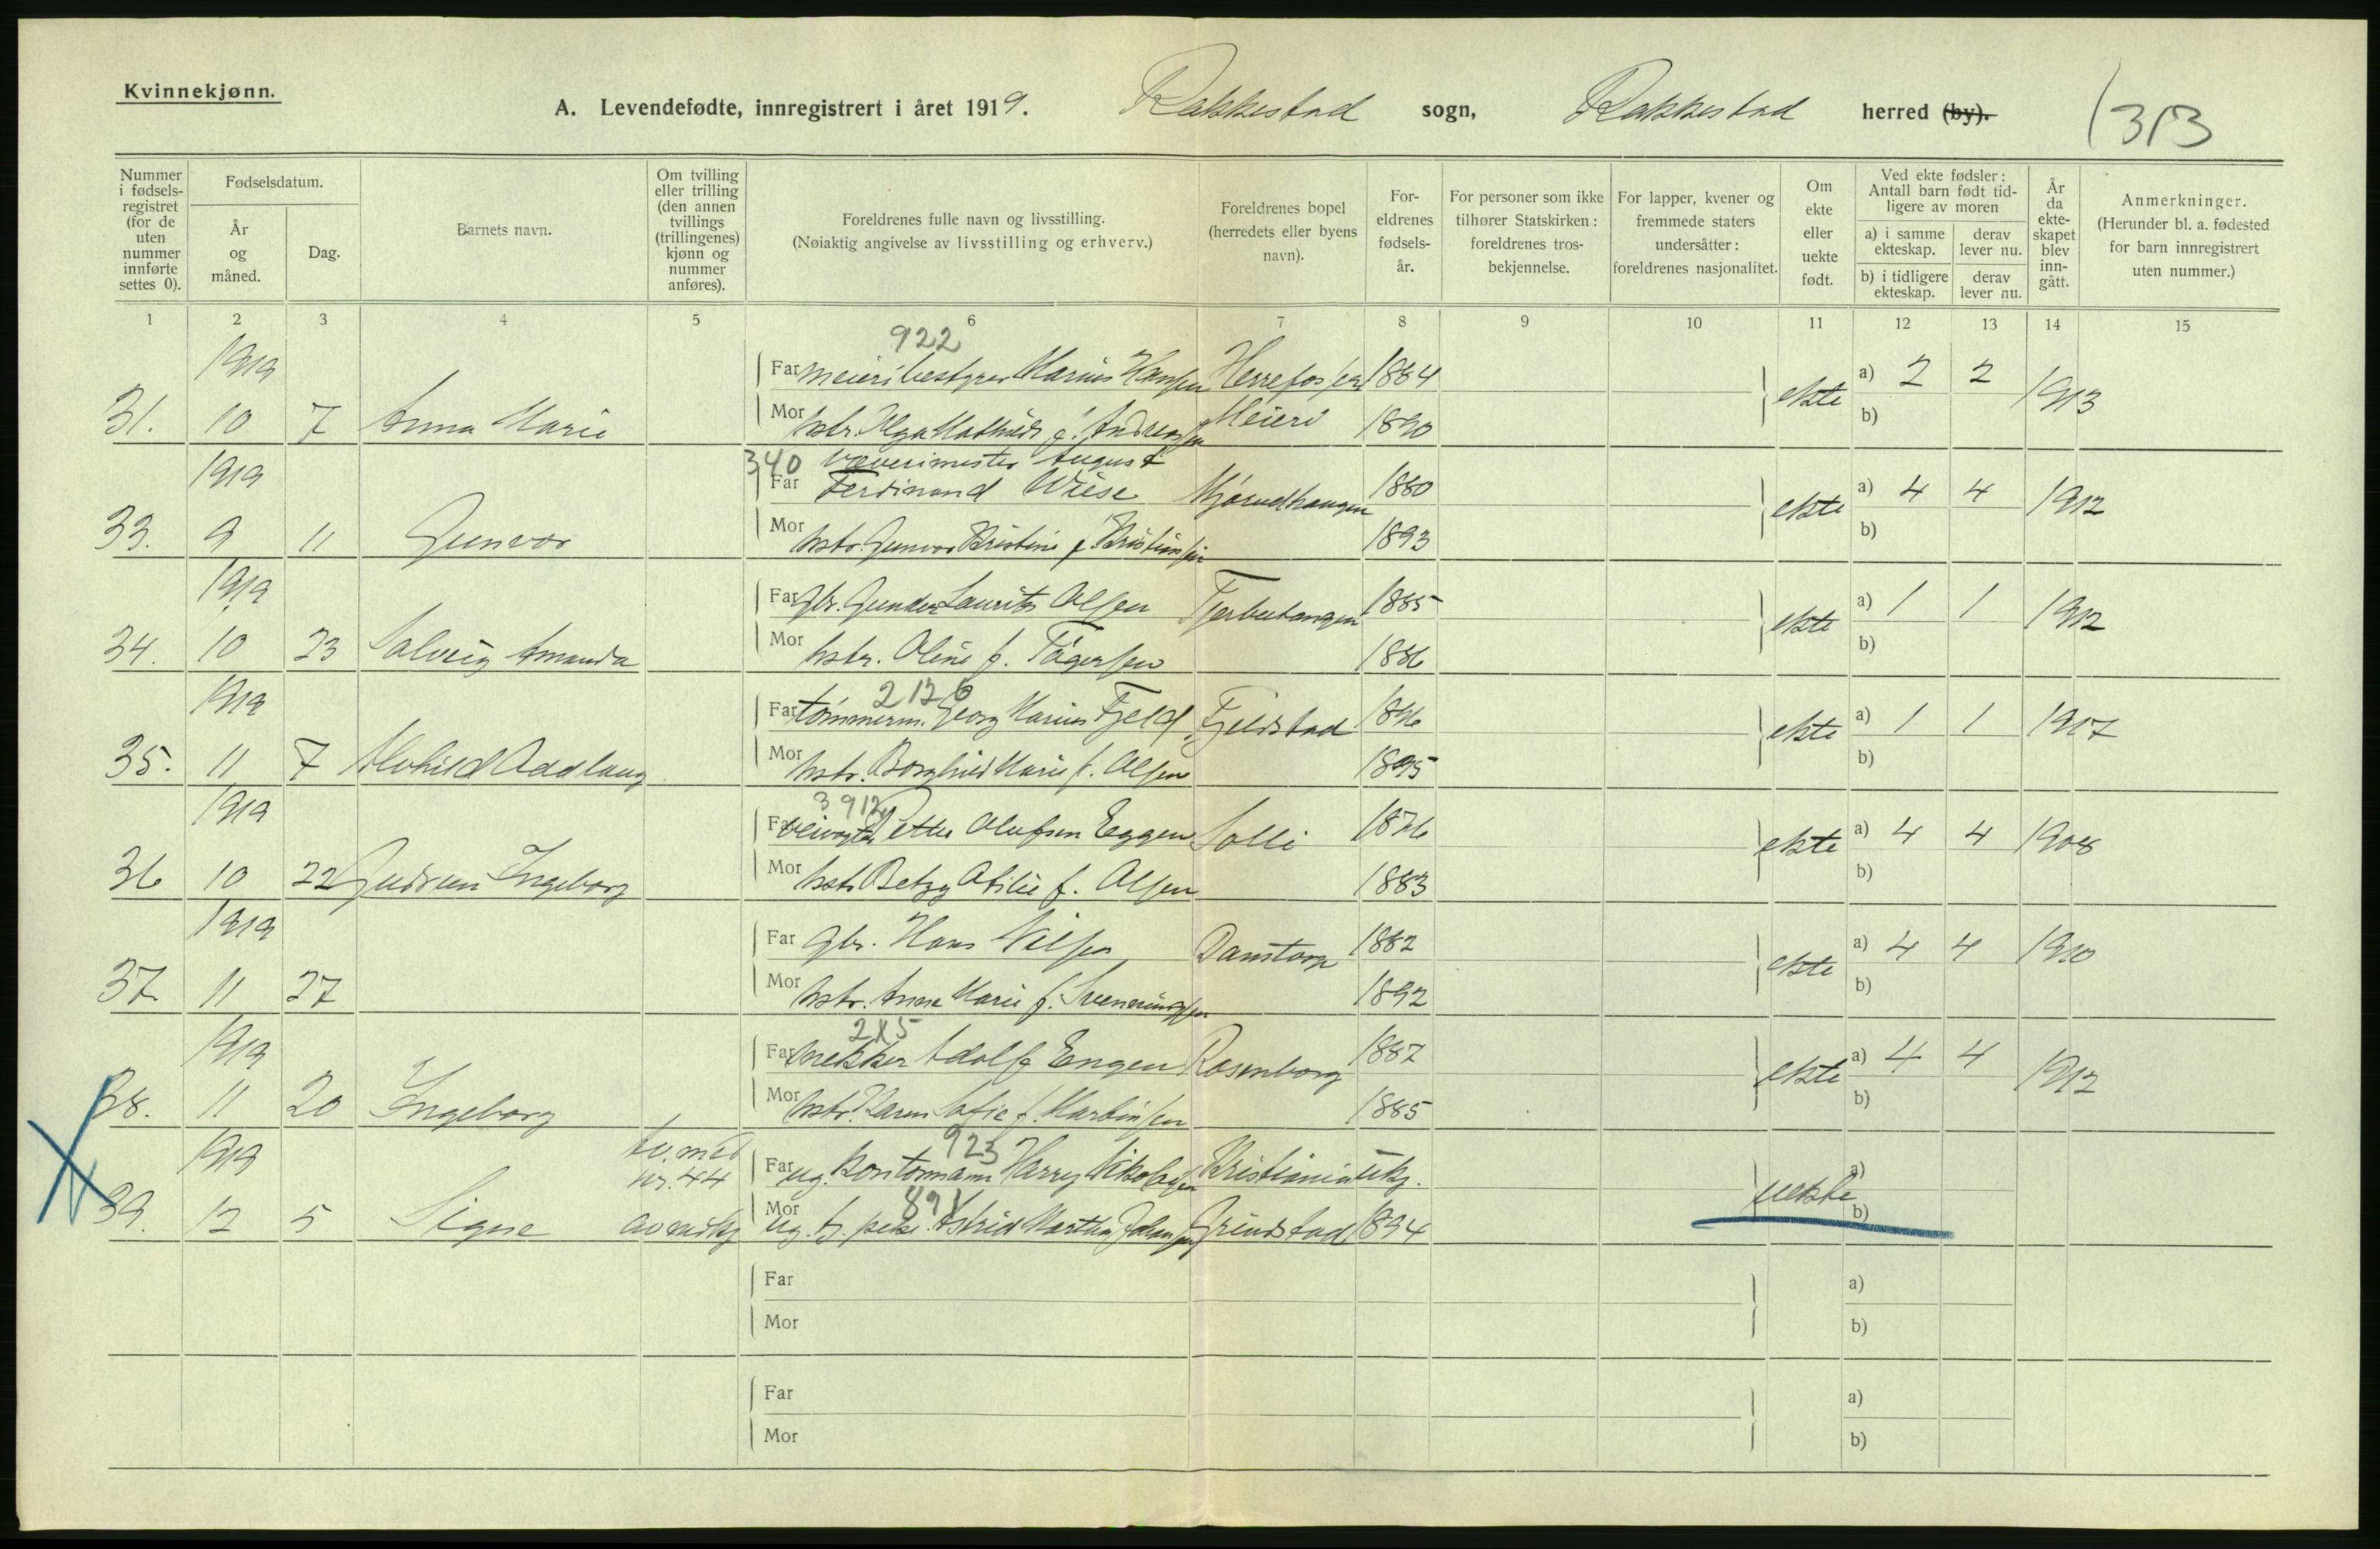 Kvinnekjønn.
A. Levendefødte, innregistrert i året 1919. Rakkestad sogn, Rakkestad herred (by). 313
Nummer i fødselsregistret (for de uten nummer innførte settes 0).
Fødselsdatum.
År og måned.
Dag.
Barnets navn.
Om tvilling eller trilling (den annen tvillings (trillingenes) kjønn og nummer anføres).
Foreldrenes fulle navn og livsstilling.
(Nøiaktig angivelse av livsstilling og erhverv.)
Foreldrenes bopel (herredets eller byens navn).
Foreldrenes fødselsår.
For personer som ikke tilhører Statskirken: foreldrenes trosbekjennelse.
For lapper, kvener og fremmede staters undersåtter: foreldrenes nasjonalitet.
Om ekte eller uekte født.
Ved ekte fødsler: Antall barn født tidligere av moren
a) i samme ekteskap.
derav lever nu.
b) i tidligere ekteskap.
derav lever nu.
År da ekteskapet blev inngått.
Anmerkninger.
(Herunder bl. a. fødested for barn innregistrert uten nummer.)
1 2 3 4 5 6 7 8 9 10 11 12 13 14 15
922
1919 Far meieribestyrer Marius Hansen 1884 a) 2 2
31. 10 7 Anna Marie Mor hstr. Olga Mathilde f. Andreassen Meieri 1890 ekte b) 1913
340 Væverimester August
1919 Far Ferdinand Wiese 1880 a) 4 4
33. 9 11 Gunvor Mor hstr. Gunvor Kristine f. Kristiansen 1893 ekte b) 1912
1919 Far gbr. Gunder Laurits Olsen 1885 a) 1 1
34. 10 23 Solveig Amanda Mor hstr. Oline f. 1886 ekte b) 1912
2126
1919 Far tømmerm. Georg Marius Fjeld Fjeldstad 1896 a) 1 1
35. 11 7 Mor hstr. Borghild Marie f. Olsen 1895 ekte b) 1917
3912
1919 Far Petter Olufsen Eggen Solli 1876 a) 4 4
36 10 22 Gudrun Ingeborg Mor hstr. Betzy Otilie f. Olsen 1883 ekte b) 1908
1919 Far gbr. Hans Nilsen Danstorp 1882 a) 4 4
37. 11 27 Mor hstr. Anna Marie f. Svenningsen 1892 ekte b) 1910
215
1919 Far snekker Adolf Engen Rosenborg 1887 a) 4 4
38. 11 20 Ingeborg Mor hstr. Karen Sofie f. Martinsen 1885 ekte b) 1912
923
1919 tv. med nr. 44 Far ug. kontormann Harry Nikolaysen Kristiania ukj. a)
891
39. 12 5 Signe av mandkj Mor ug. tj. pike Astrid Martha Johansen Grindstad 1894 uekte b)
Far a)
Mor b)
Far a)
Mor b)